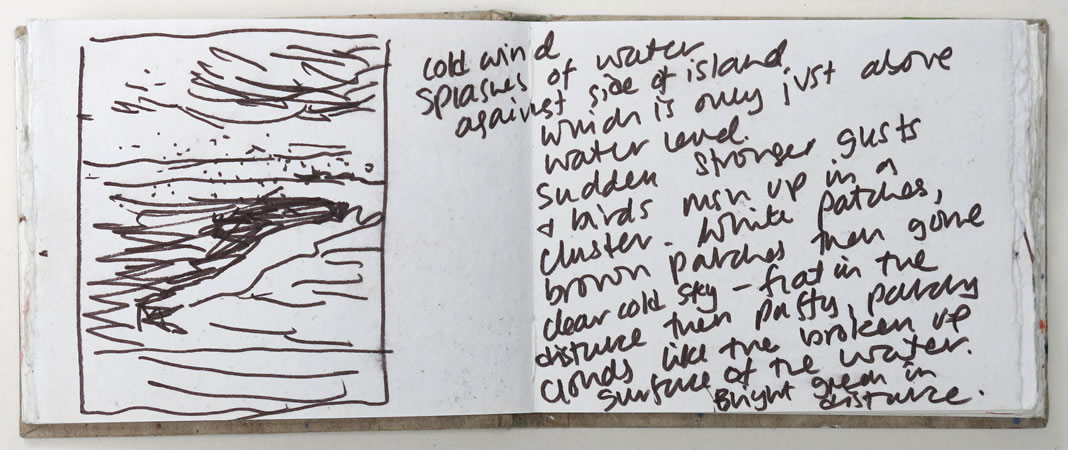 cold wind
splashes of water
against side of island.
which is only just above
water level.
sudden stronger gusts
& birds rush up in a
cluster. White patches,
brown patches then gone
clear cold sky – flat in the
distance then patty, patchy
clouds like the broken up
surface of the water.
Bright green in
distance.